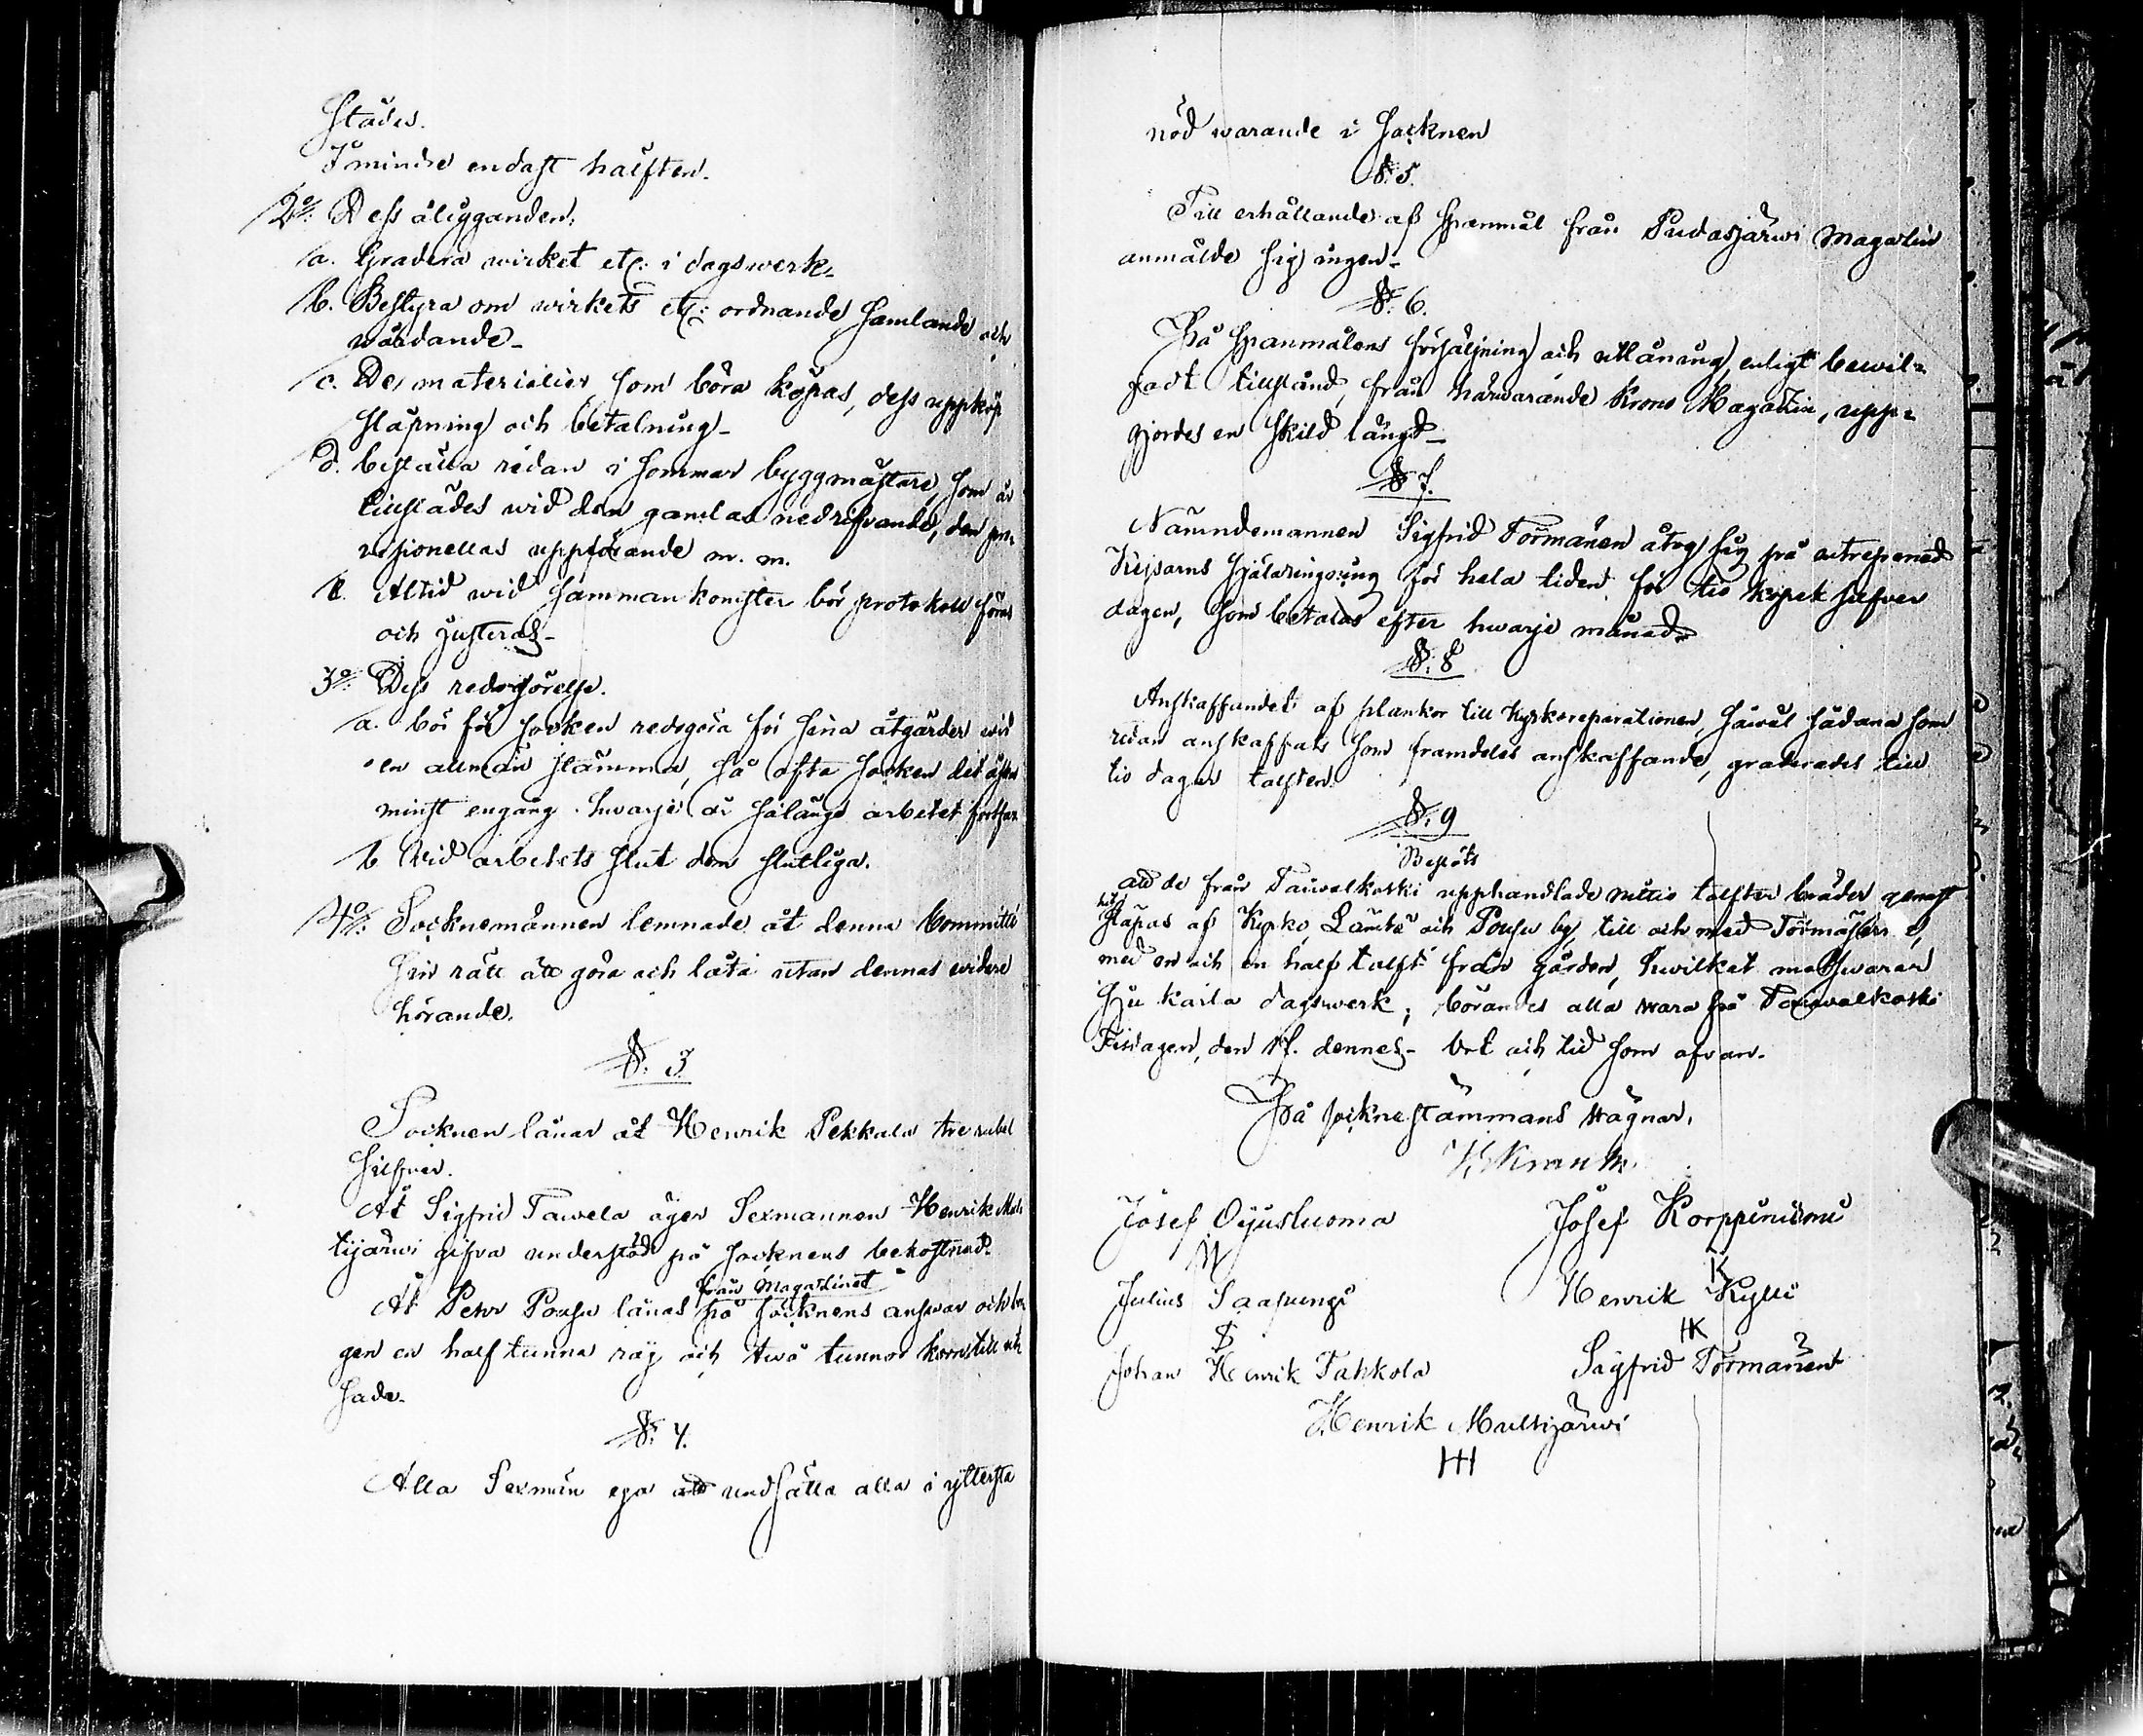 städes.
I mindre endast hälften.
2o/: Dess åligganden:
a. Gradera wirket etc: i dagswerk.
b. Bestyra om wirkets etc: ordnande samlande och
wårdande.
c. De materialier som böra köpas, dess uppköp
släpning och betalning.
d. beställa redan i sommar byggmästare, som är
tillstädes wid den gamlas nedrifvande, den pro-
visionellas uppförande m. m.
e. Altid wid sammankomster bör protokoll föras
och justeras.
3o/: Dess redogörelse.
a. bör för socken redogöra för sina åtgärder wid
en allmän stämma, så ofta socken det äskar
minst engång hwarje år sålänge arbetet fortfar.
b Wid arbetets slut dem slutliga.
4o/: Socknemännen lemnade åt denna Committé
sin rätt att göra och låta utan dennas widare
hörande.
§. 3.
Socknen lånar åt Henrik Pekkala tre rubel
silfver.
At Sigfrid Tawela äger Sexmannen Henrik Mul-
tijärwi gifva understöd på socknens bekostnad.
från Magazinet
At Petr Pousu lånas på socknens answar och bor
gen en half tunna råg och twå tunnor korn till ut
säde.
§. 4.
Alla Sexmän ega att undsätta alla i yttersta
nöd warande i socknen
§. 5.
Till erhållande af spanmål från Pudasjärwi Magazin
anmälde sig ingen.
§. 6.
På spanmålens försäljning och utlåning, enligt bewil-
jadt tillstånd, från härwarande Krono Magazin, upp-
gjordes en skild längd.
§ 7.
Nämndemannen Sigfrid Törmänen åtog sig på entreprenad
Kejsarns för hela tiden för tio kopek silfver
dagen, som betalas efter hwarje månad.
§. 8.
Anskaffandet af plankor till kyrkoreparationen, såwäl sådana som
redan anskaffats som framdeles anskaffande, graderades till
tio dagar tolften.
§. 9
Beslöts
att de från Taiwalkoski upphandlade nittio tolfter bräder genast
hit
släpas af Kyrko, och Pousu by, till och med Törmäsen,
med en och en half tolft från gården, hwilket motswarar
sju karla dagswerk; börandes alla wara på Taiwalkoski
Tisdagen, den 17. dennes. Ort och tid som ofvan.
På socknestämmans wägnar,
Josef Oijusluoma Josef Korppiniemi
Julius Saapungi Henrik Kylli
Johan Henrik Tahkola Sigfrid Törmänen
HK
Henrik Multijärwi